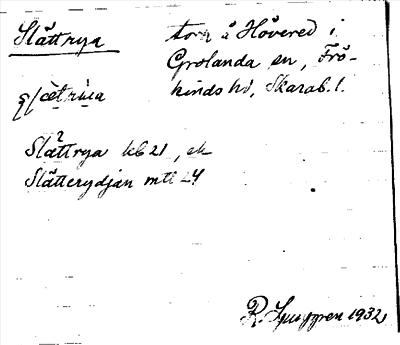 Slättrya
torp å Hövered i
Grolanda sn, Frö-
kinds hd, Skarab. l.
Slättrya kb 21, ek
Slätterydjan mtl 24
R. Ljunggren 1932